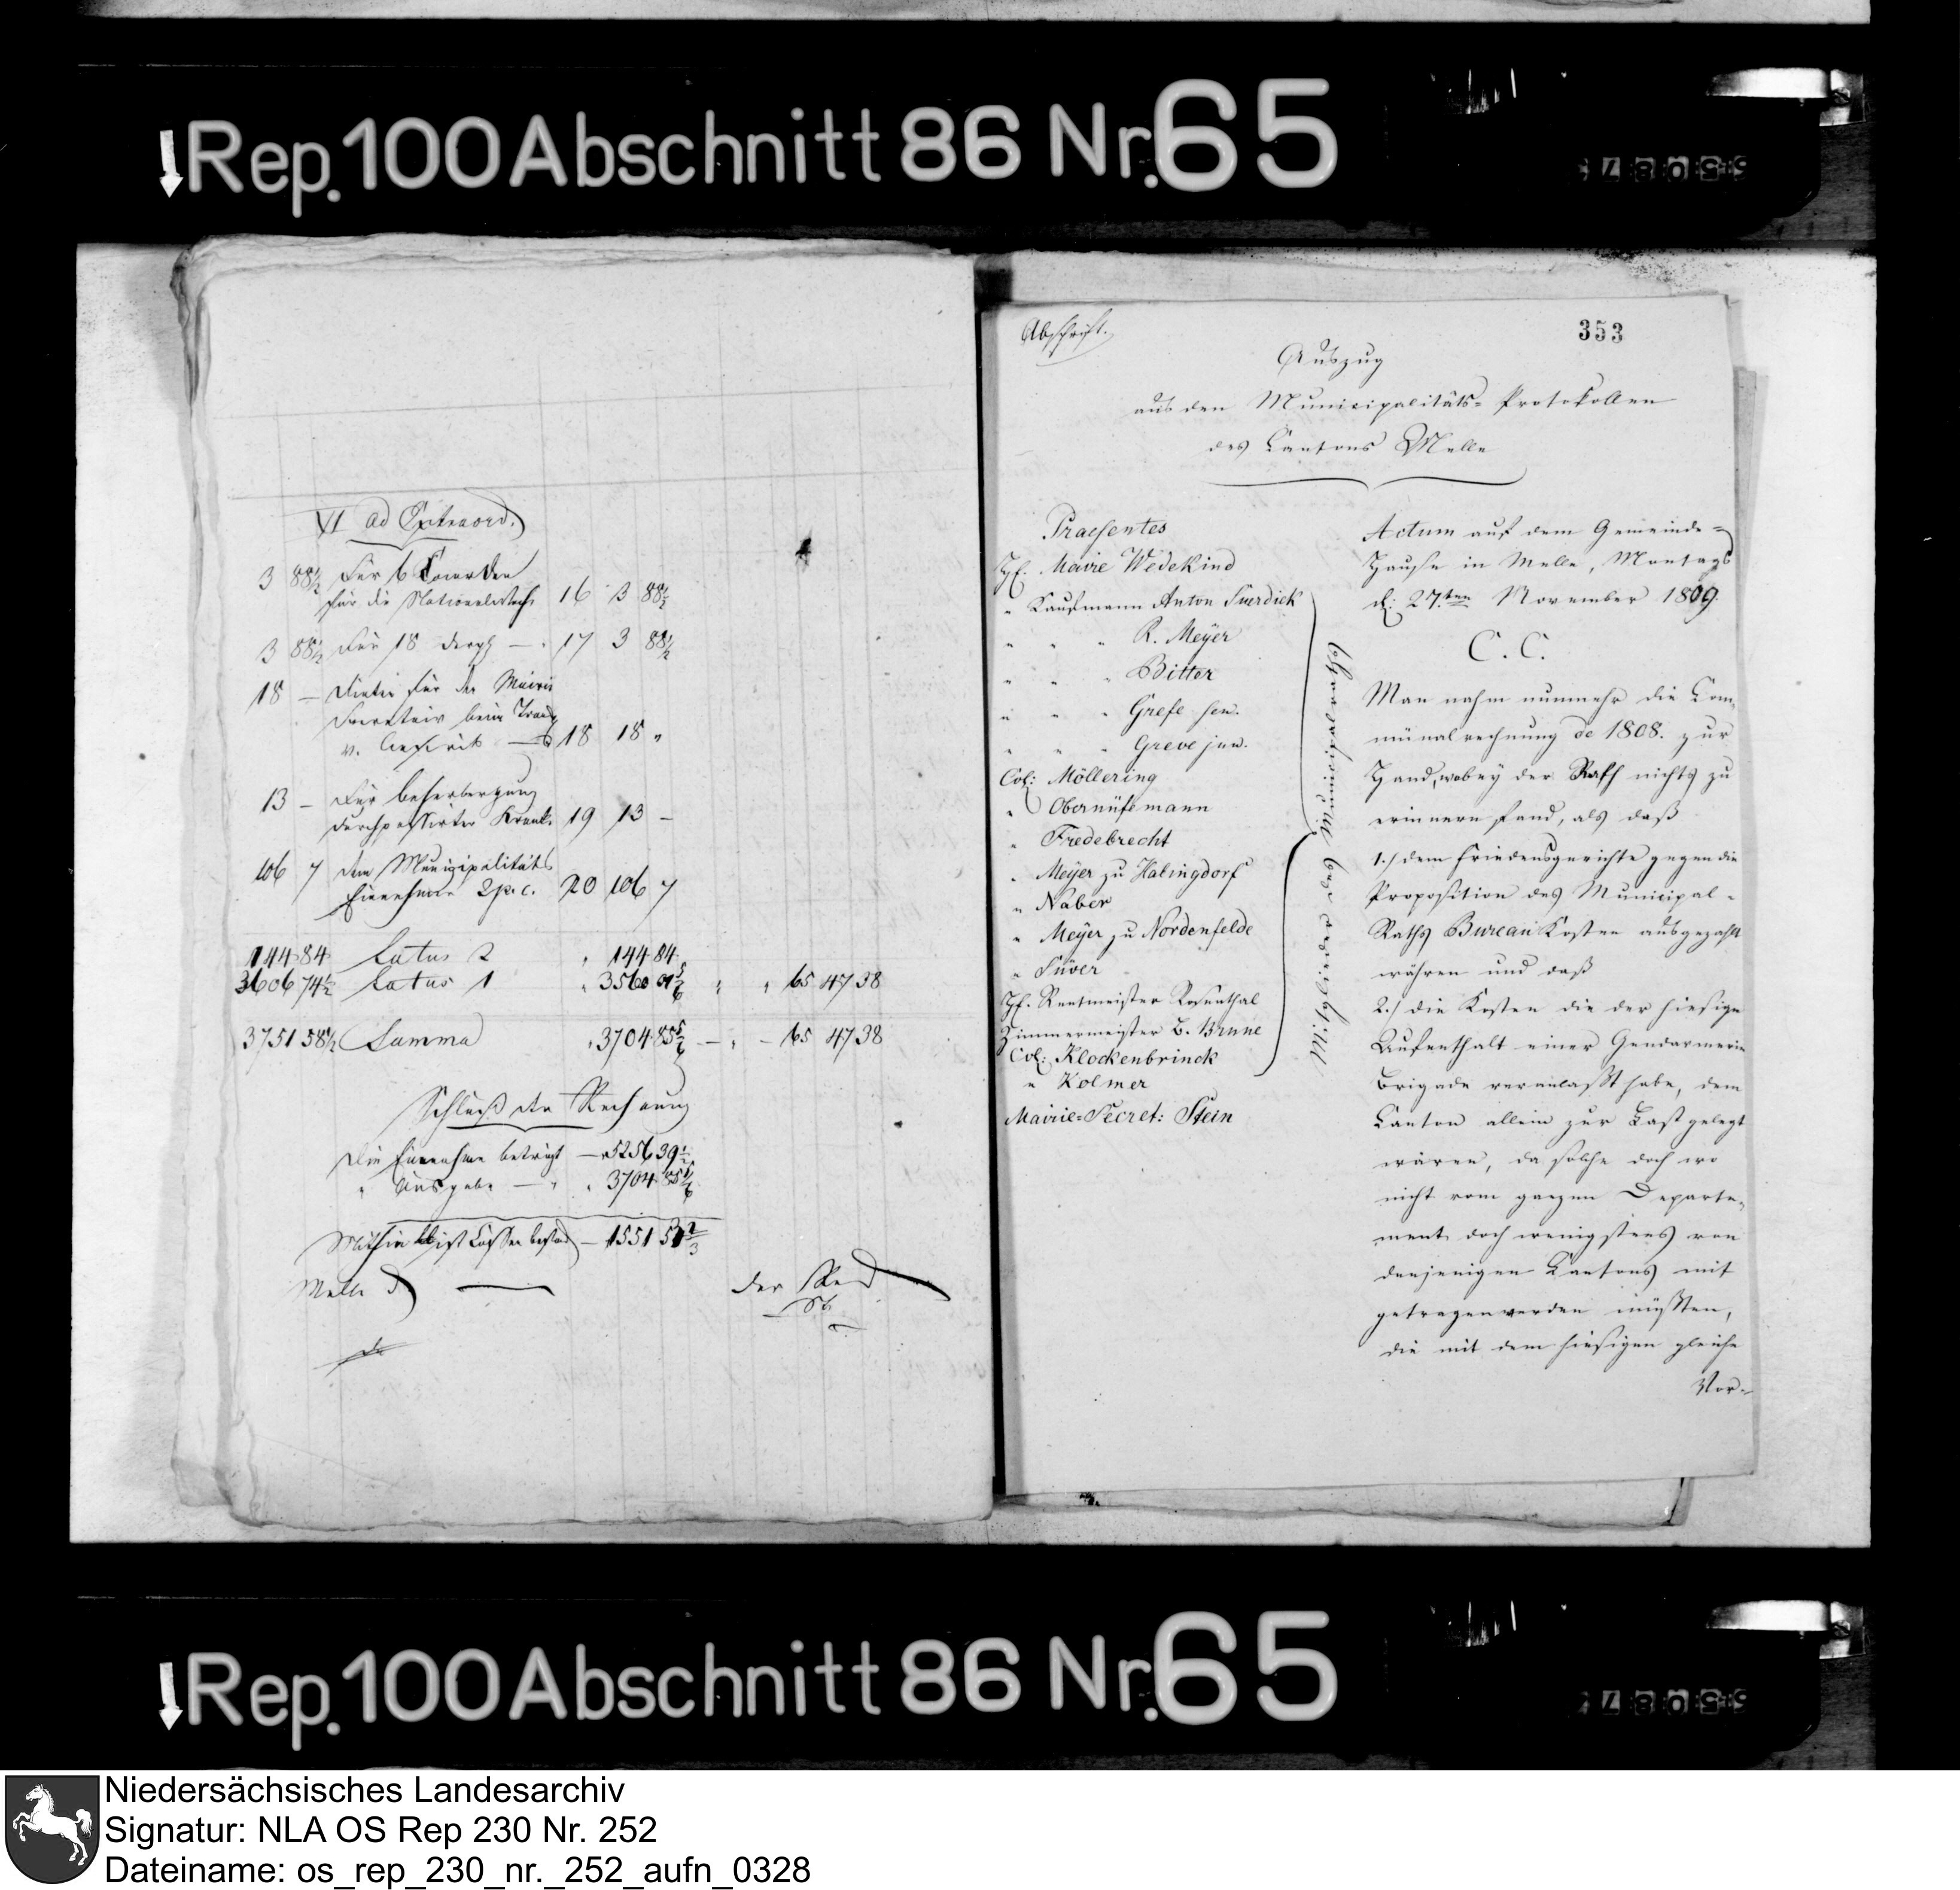 Rep. 100 Abschnitt 86 Nr. 65
VI ad Extraord.
3 88½ Für 6 Cocarden
für die Nationalwache 16 3 88½
3 88½ Für 18 dergl — 17 3 88½
18 — Diäten für den Mairie
Secretair beim
v. 18 18 "
13 — Für Beherbergung
durchpassirter Krank. 19 13 —
106 7 dem Municipalitäts
Einnehmer 2 p. c. 20 106 7
144 84 Latus 2 " 144 84
3606 74½ Latus 1 " 3560 01 5/6 " " 65 47 38
3751 58½ Summa " 3704 85 5/6 — " — 65 47 38
Schluß der Rechnung
Die Einnahme beträgt — 5256 39½
" Ausgabe — " " 3704 85 5/6
Mithin ist Cassen bestand — 1551 53 2/3
Melle d —
Abschrift.
353
Auszug
aus den Municipalitäts= Protokollen
des Cantons Melle
Praesentes
Hr. Maire Wedekind
" Kaufmann Anton Suerdiek
" " " R. Meÿer
" " " Bitter
" " " Grefe sen.
" " " Greve jun.
Col: Möllering
" Obernüfemann
" Fredebrecht
" Meÿer zu Halingdorf
" Naber
" Meÿer zu Nordenfelde
" Süver
Hr. Rentmeister Rosenthal
Zimmermeister B. Brune
Col: Klockenbrinck
" Kolmer
Mairie=Secret: Stein
Mitglieder des Municipalraths
Actum auf dem Gemeinde=
Hause in Melle, Montags
d: 27.ten November 1809.
C. C.
Man nahm nunmehr die Com-
münalrechnung de 1808. zur
Hand, wobey der Rath nichts zu
erinnern fand, als daß
1./ dem Friedensgerichte gegen die
Proposition des Municipal-
Raths Bureau Kosten ausgezahlt
wären und daß
2./ die Kosten die der hiesige
Aufenthalt einer Gendarmerie
Brigade veranlaßt habe, dem
Canton allein zur Last gelegt
wären, da solche doch wo
nicht vom ganzen Departe-
ment doch wenigstens von
denjenigen Cantons mit
getragen werden müßten,
die mit dem hiesigen gleiche
Vor-
Rep. 100 Abschnitt 86 Nr. 65
Niedersächsisches Landesarchiv
Signatur: NLA OS Rep 230 Nr. 252
Dateiname: os_rep_230_nr._252_aufn_0328